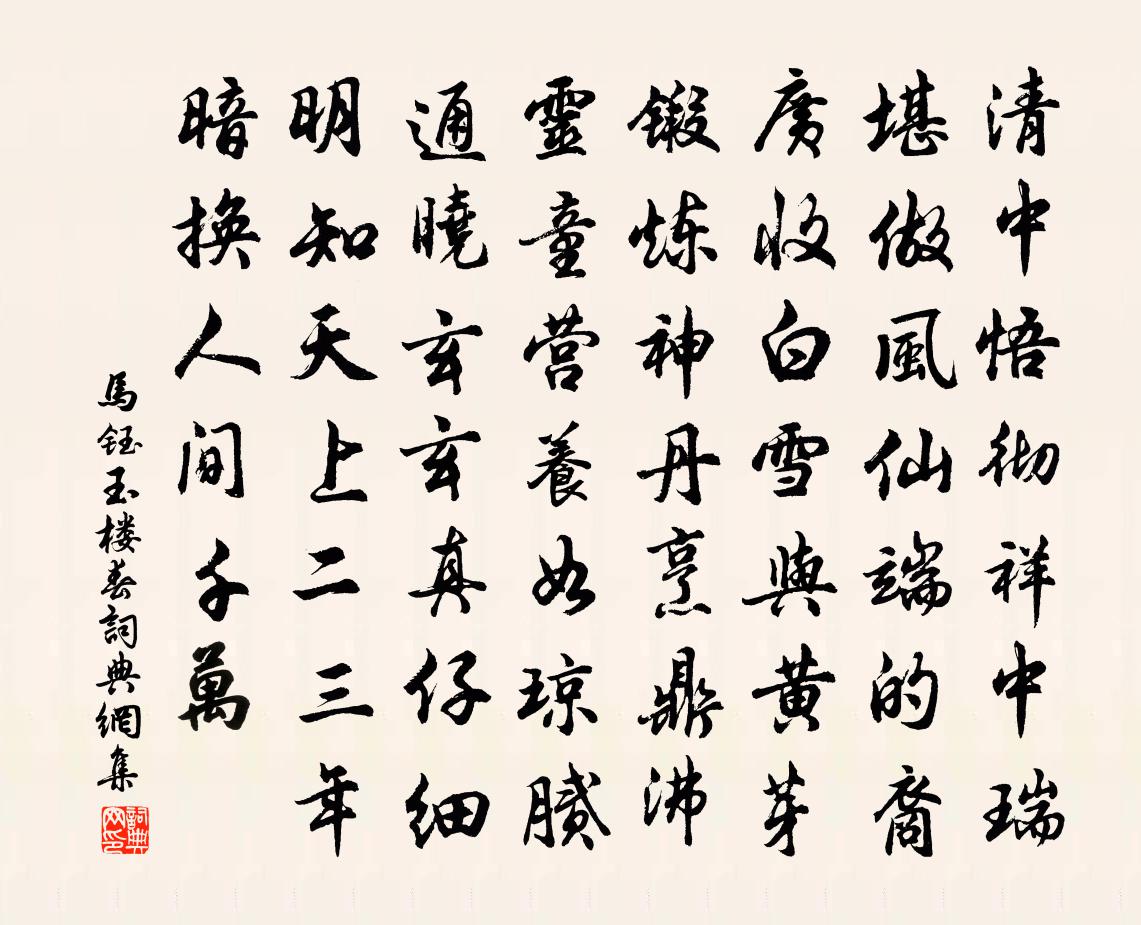 清中悟彻祥中瑞
堪做風仙端的裔
廣收白雪與黃芽
鍛炼神丹烹鼎沸
靈童营養如琼膩
通曉玄玄真仔细
明知天上二三年
暗换人间千萬
馬鈺玉楼春詞典網集
詞典网印